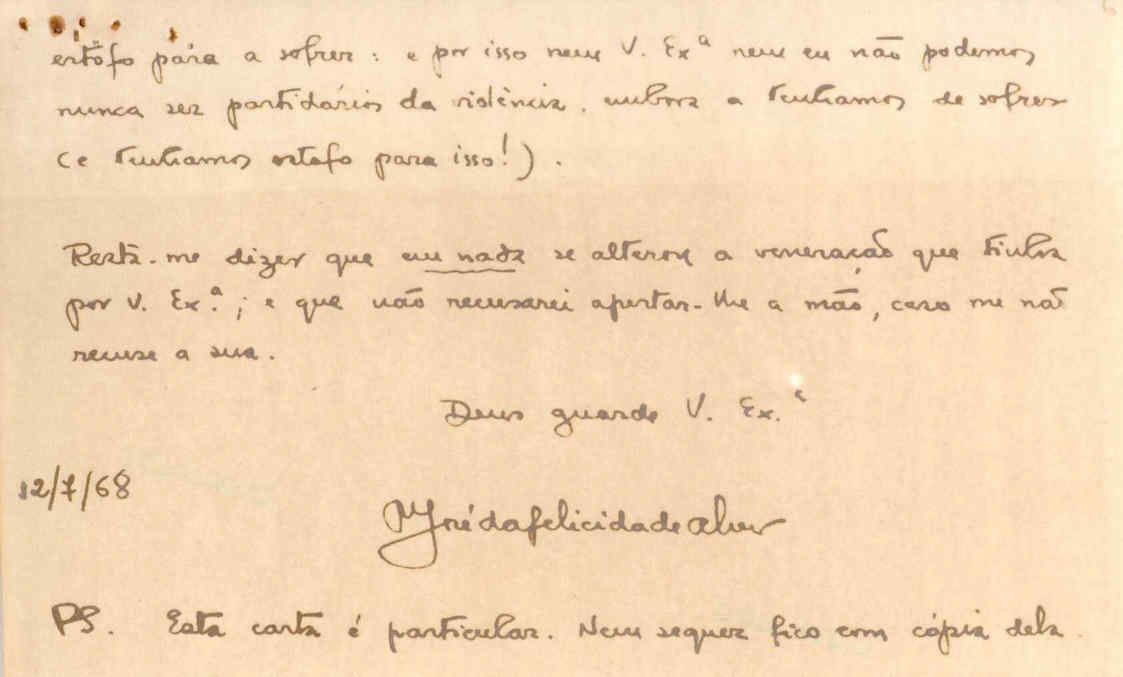 estôfo pára a sofrer : e por isso nem V. Exª nem eu não podemos
nunca ser partidários da violência, embora a tenhamos de sofrer
(e tenhamos estofo para isso!) .
Resta-me dizer que em nada se alterou a veneração que tinha
por V. Ex.ª ; e que não recusarei apertar-lhe a mão, caso me não
recuse a sua .
Deus guarde V. Ex.ª
12/7/68
José da felicidade alves
PS. Esta carta é particular. Nem sequer fico com cópia dela .